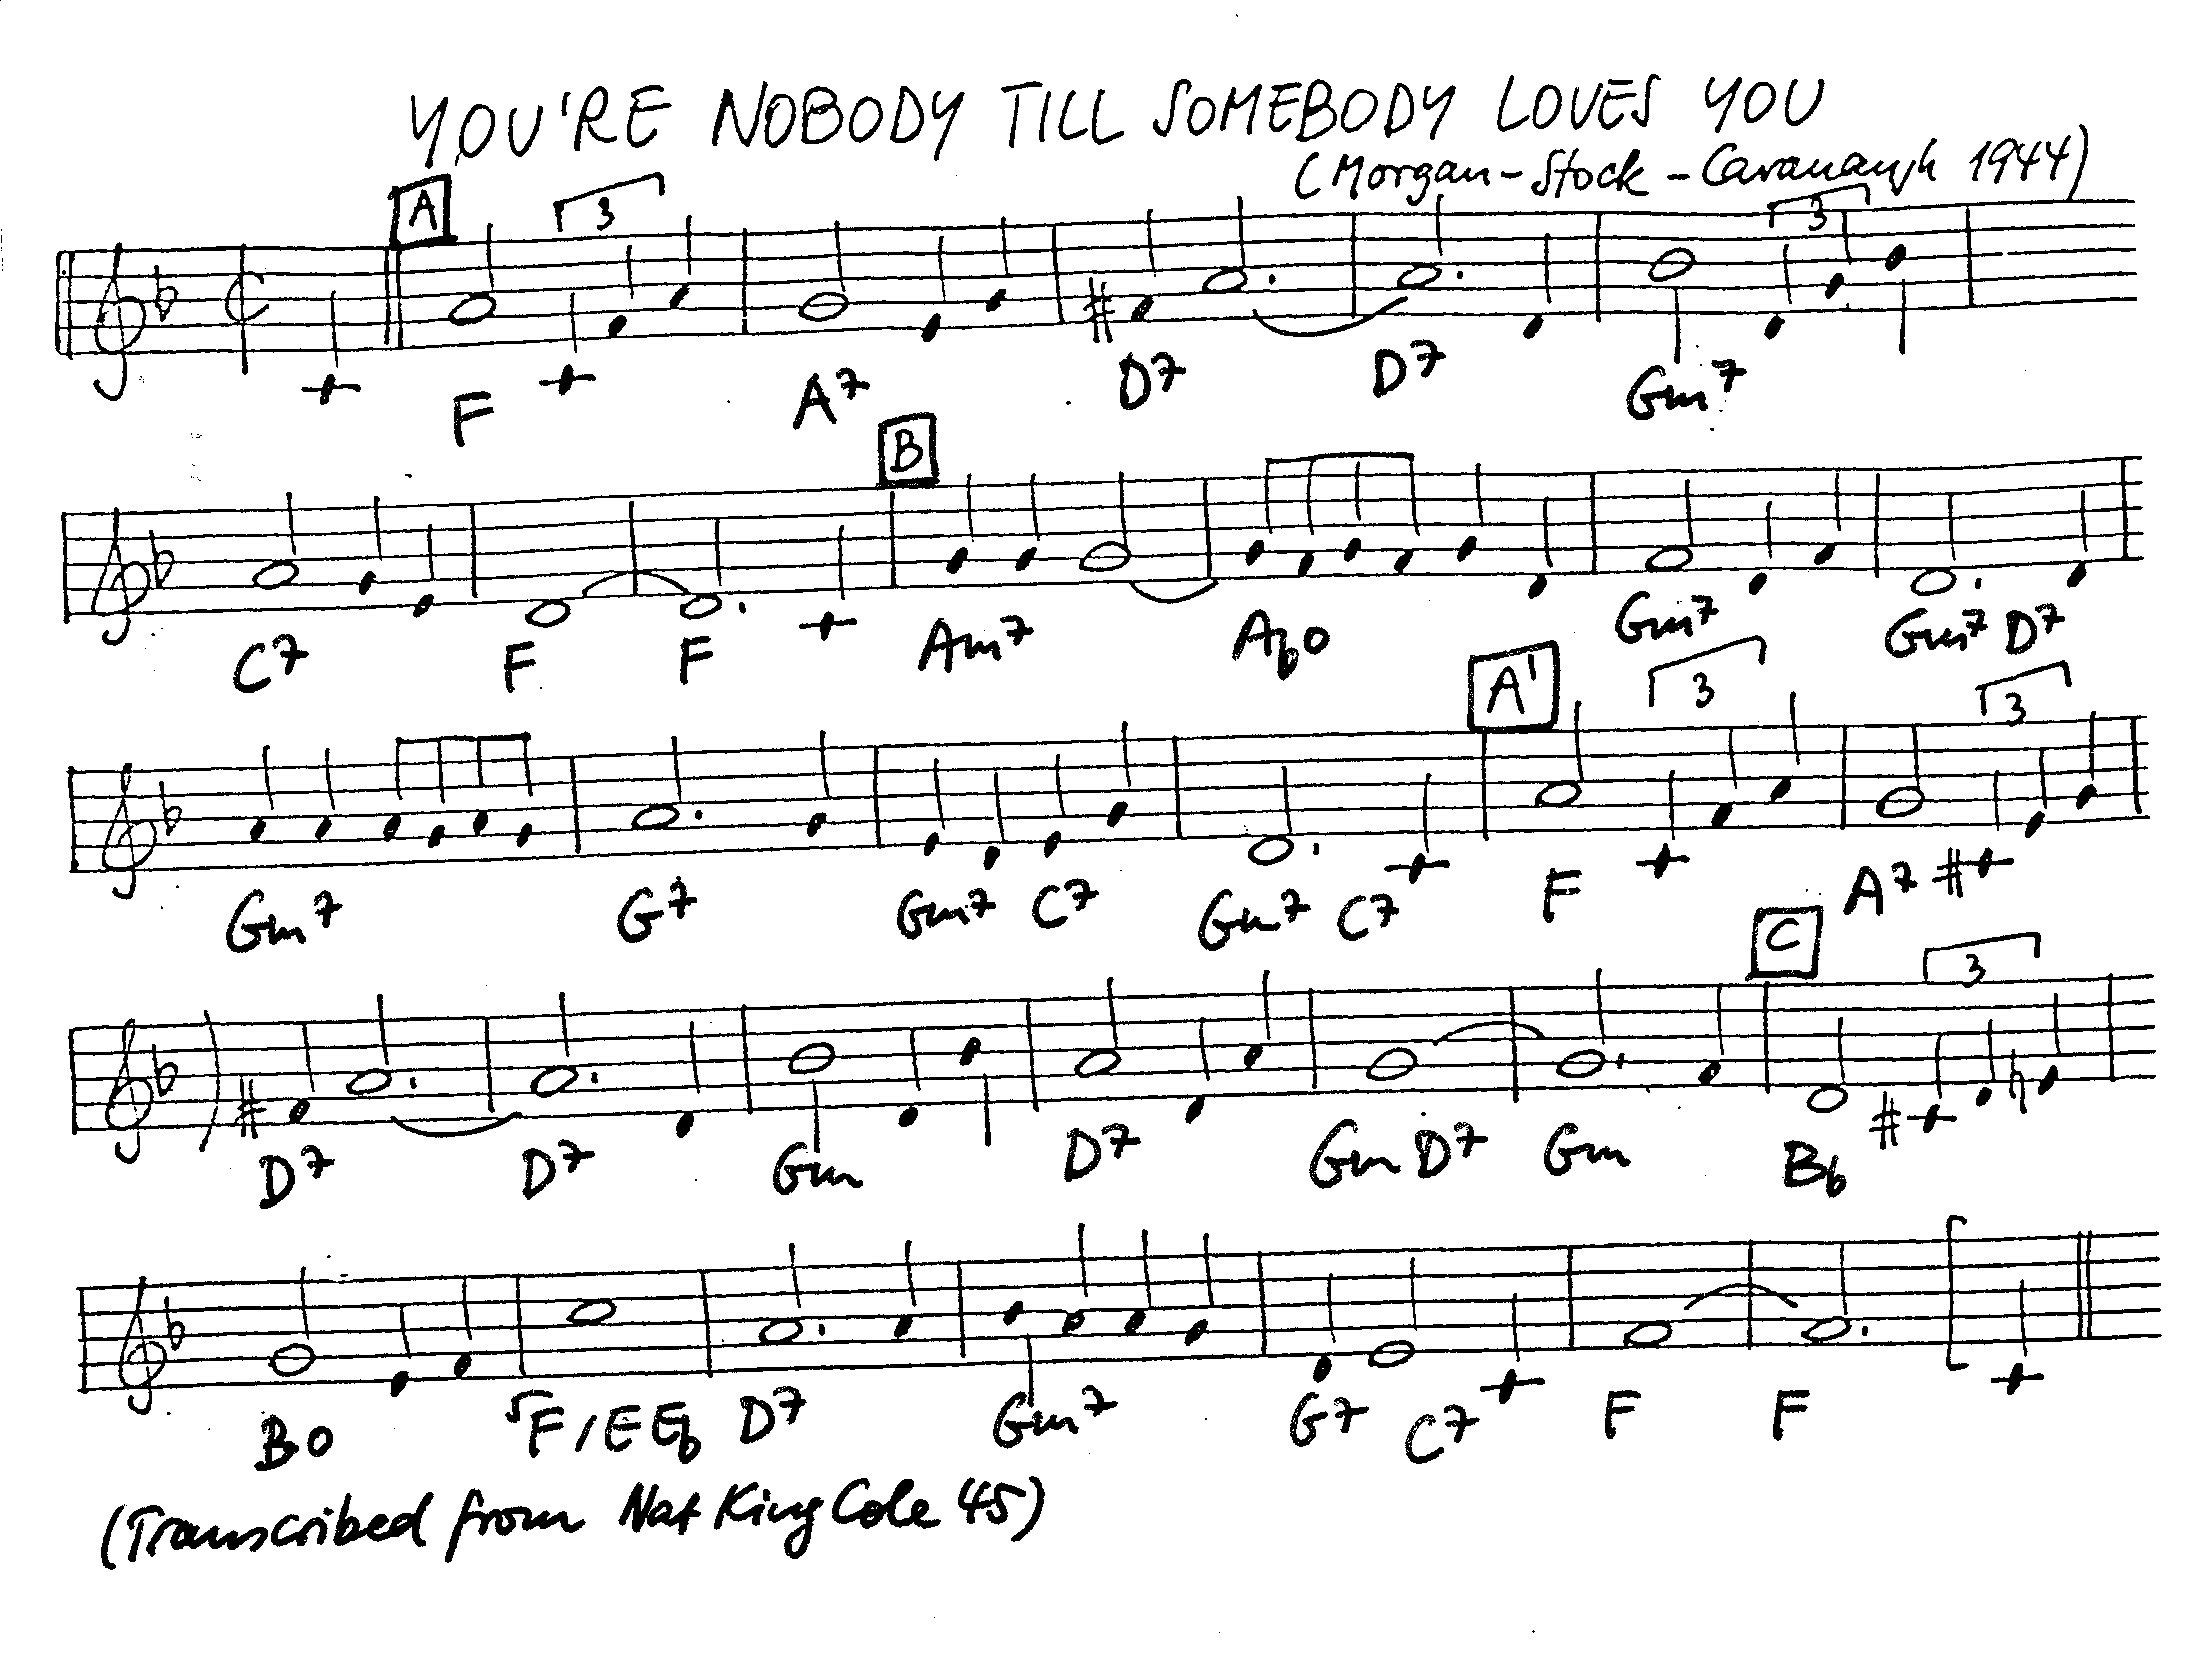 YOU'RE NOBODY TILL SOMEBODY LOVES YOU
(Morgan-Stock-Cavanaugh 1944)
A 3 3
F A7 D7 D7 Gm7
B
C7 F F Am7 Abo Gm7 Gm7 D7
A' 3 3
Gm7 G7 Gm7 C7 Gm7 C7 F A7
C 3
D7 D7 Gm D7 Gm D7 Gm Bb
Bo F/E Eb D7 Gm7 G7 C7 F F
(Transcribed from Nat King Cole 45)